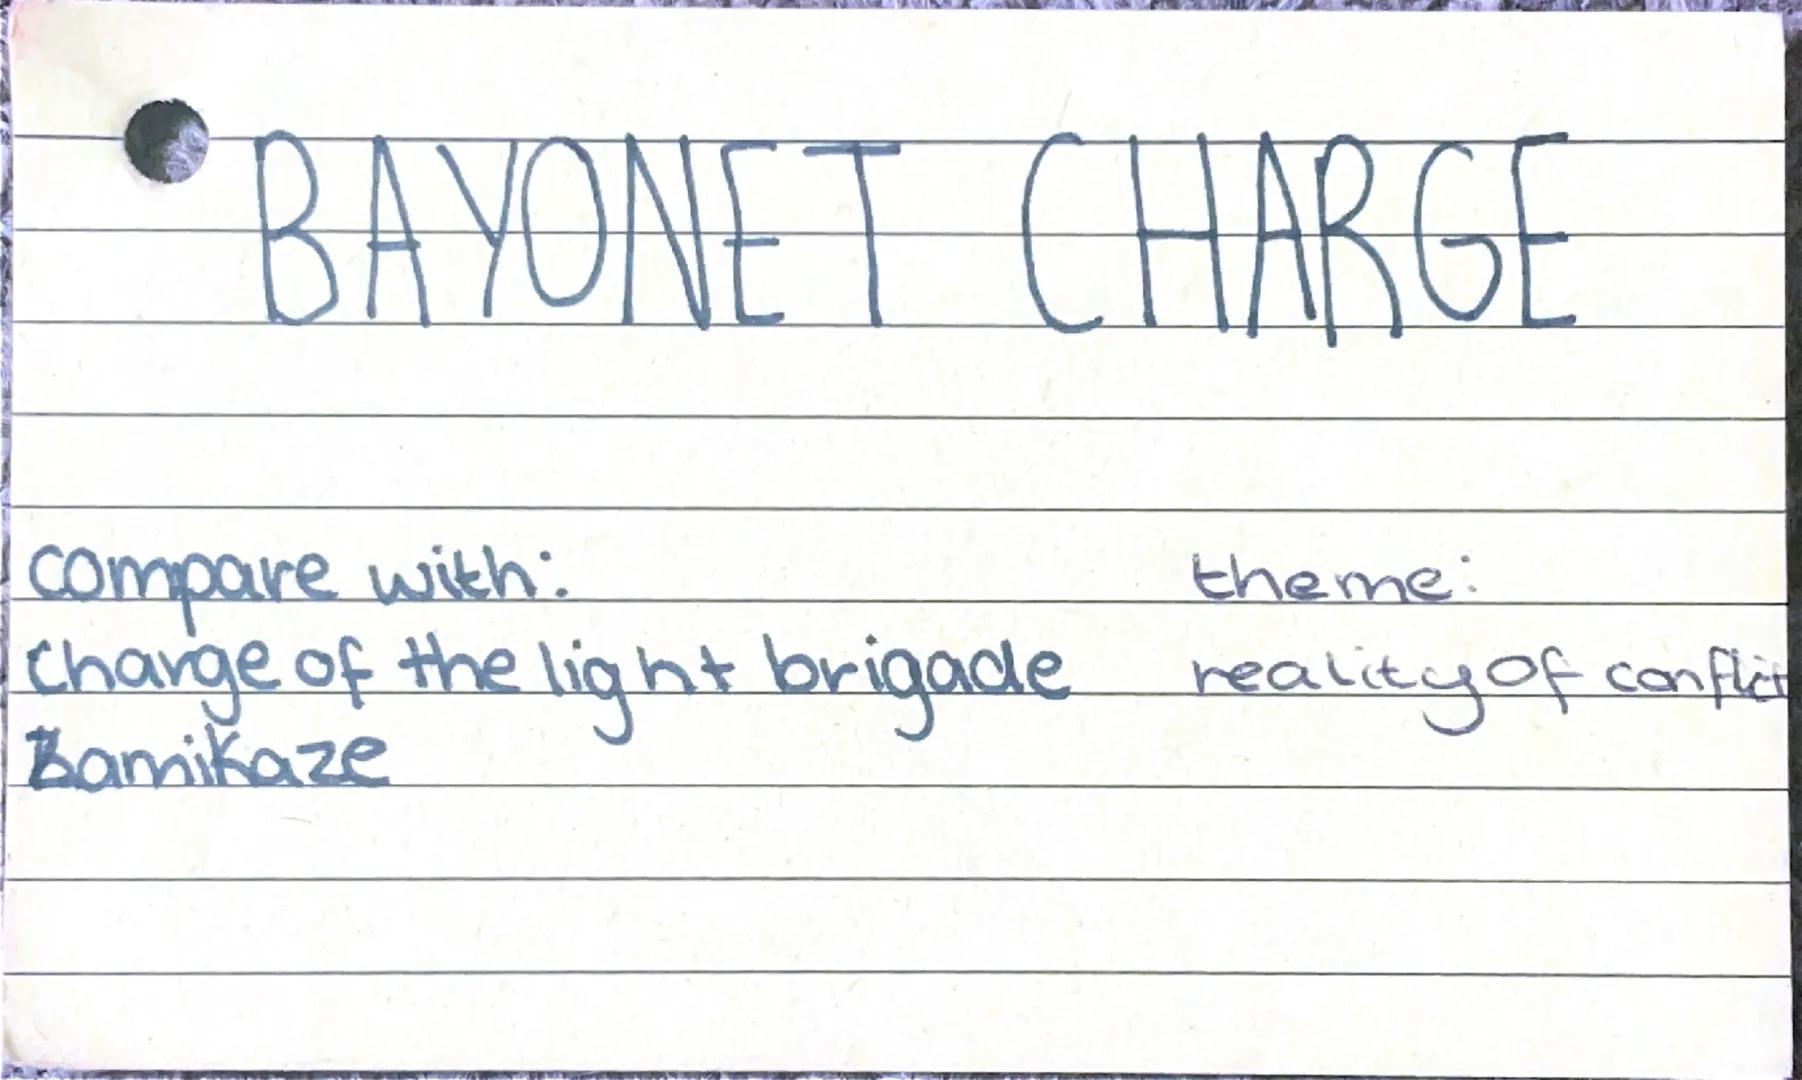 BAYONET CHARGE
compare with:
theme:
charge of the light brigade
reality of conflict
Kamikaze